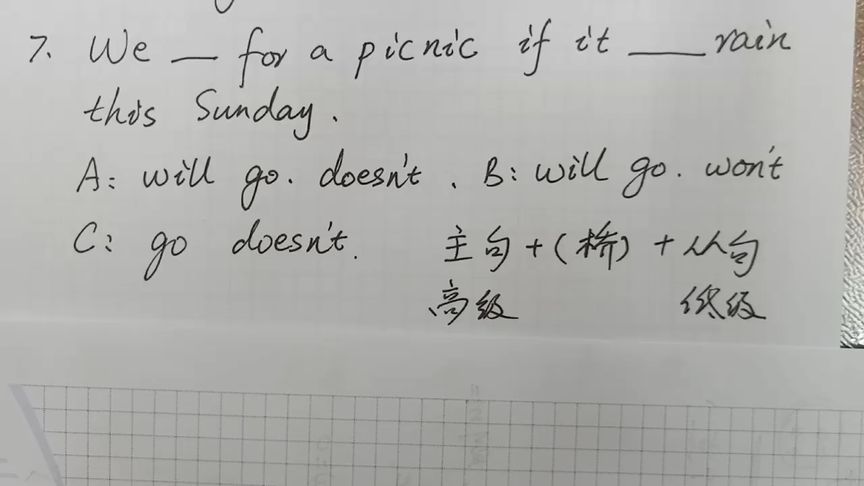 7. We __ for a picnic if it ____ rain
this Sunday.
A: will go. doesn't. B: will go. won't
C: go doesn't. 主句+(桥)+从句
高级 低级